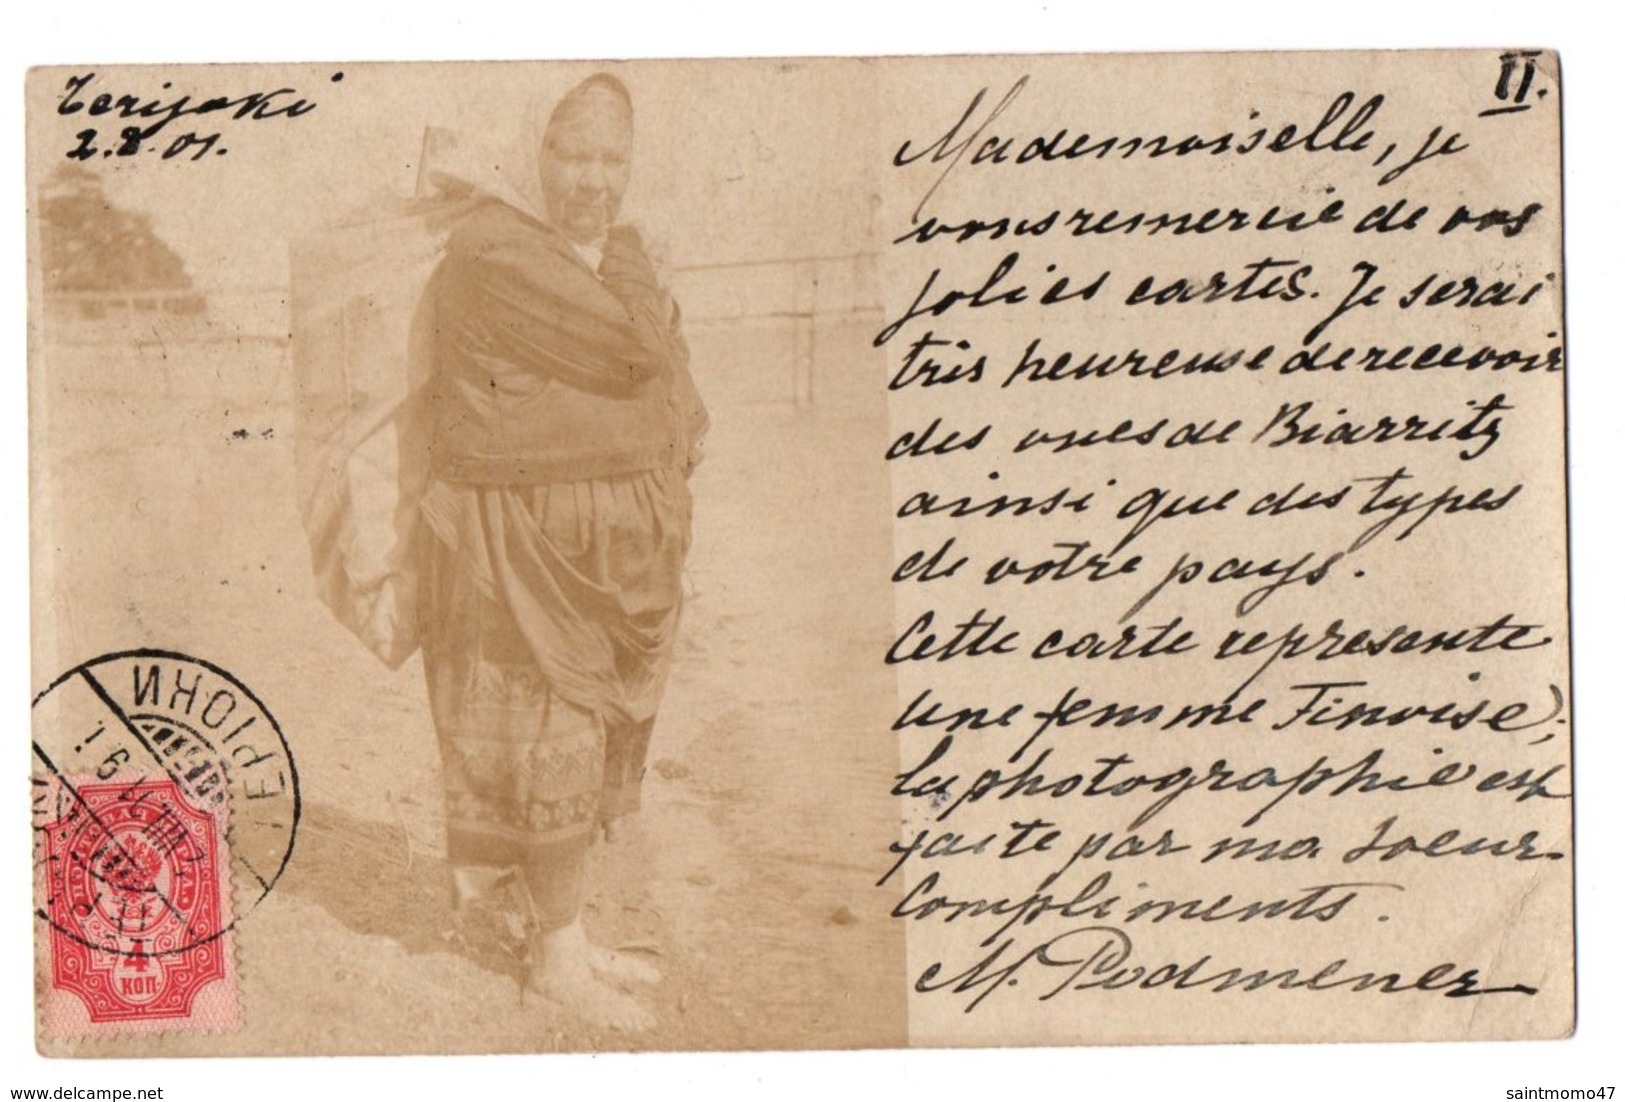 Terijoki
2.8.01.
II.
Mademoiselle, je
vous remercie de vos
jolies cartes. Je serai
très heureuse de recevoir
des vues de Biarritz
ainsi que des types
de votre pays.
Cette carte represente
une femme Finoise;
la photographie est
faite par ma soeur.
Compliments.
M. Podmener
ТЕРІОКИ
4
КОП
www.delcampe.net
saintmomo47